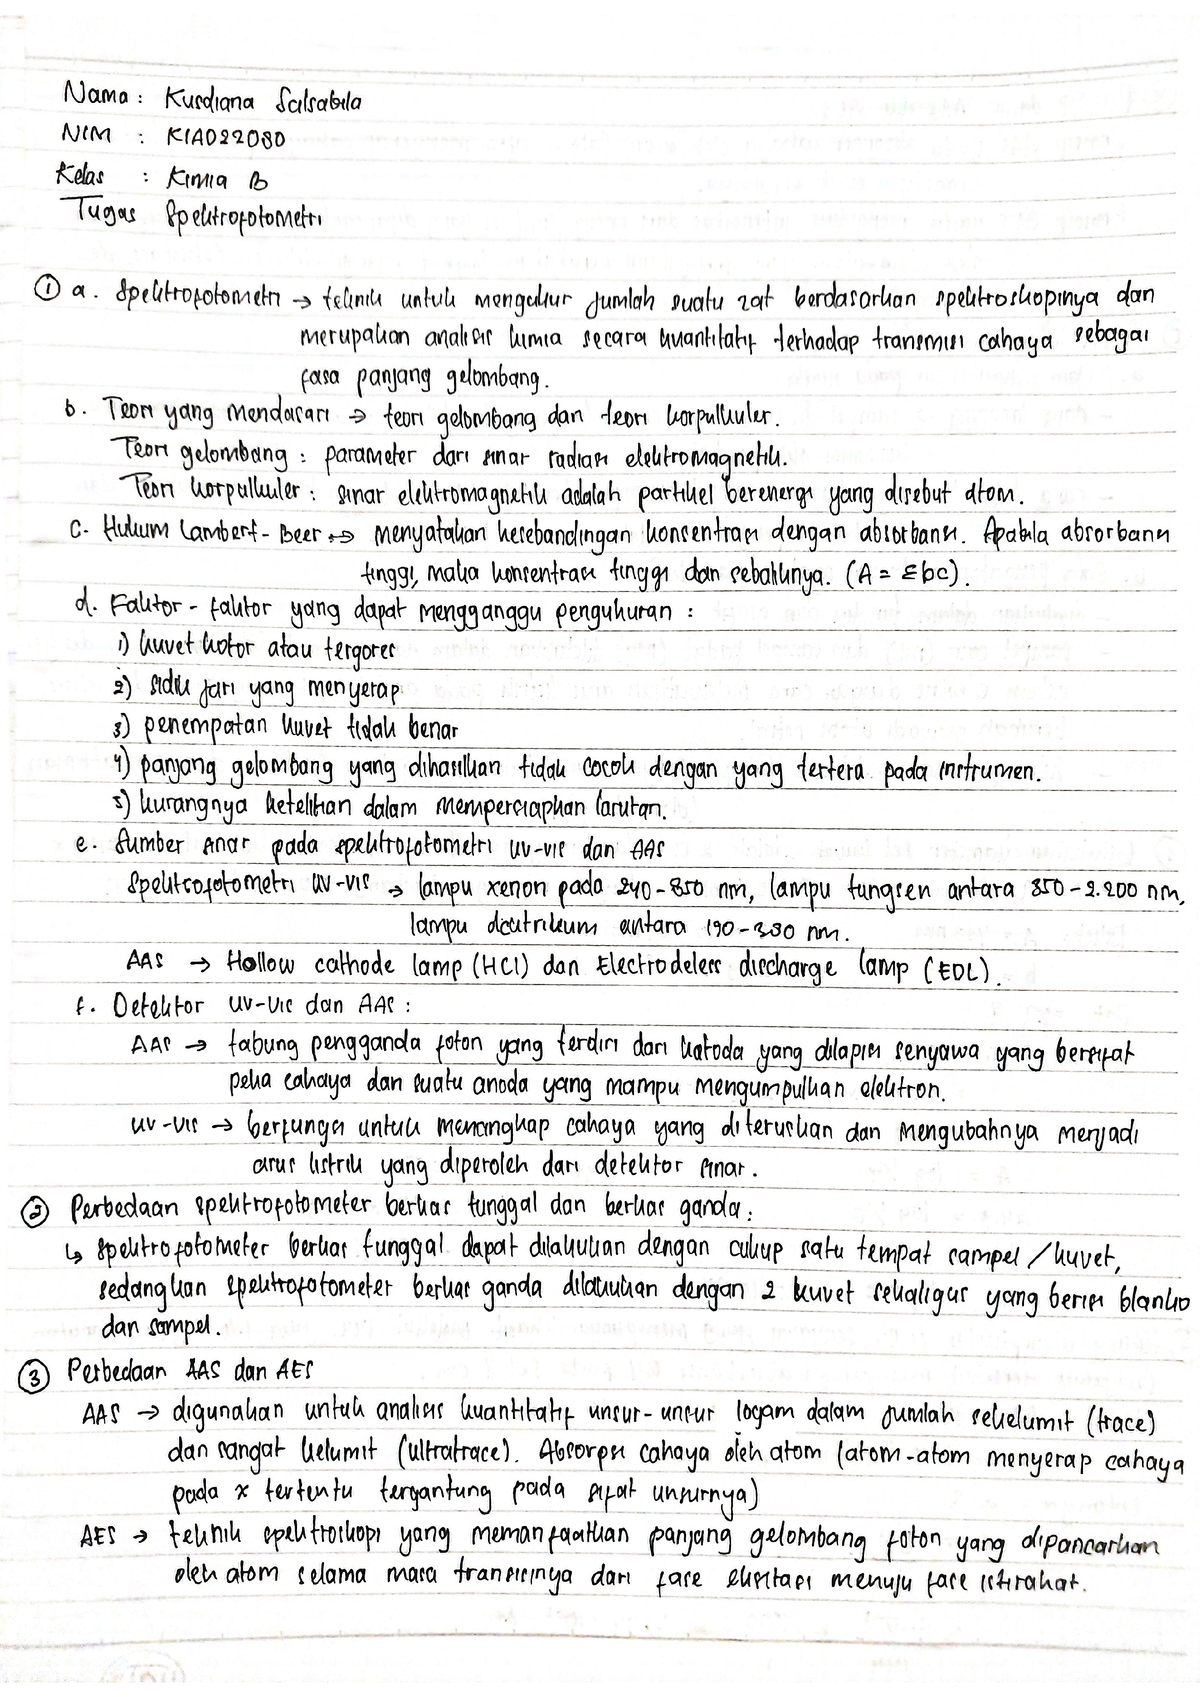 Nama : Kusdiana Salsabila
NIM : K1A022080
Kelas : Kimia B
Tugas Spektrofotometri
① a. Spektrofotometri → teknik untuk mengukur jumlah suatu zat berdasarkan spektroskopinya dan
merupakan analisis kimia secara kuantitatif terhadap transmisi cahaya sebagai
fasa panjang gelombang.
b. Teori yang mendasari → teori gelombang dan teori korpulkuler.
Teori gelombang : parameter dari sinar radiasi elektromagnetik.
Teori korpulkuler : sinar elektromagnetik adalah partikel berenergi yang disebut atom.
c. Hukum Lambert-Beer → menyatakan kesebandingan konsentrasi dengan absorbansi. Apabila absorbansi
tinggi, maka konsentrasi tinggi dan sebaliknya. (A = Ɛbc).
d. Faktor-faktor yang dapat mengganggu pengukuran :
1) kuvet kotor atau tergores
2) sidik jari yang menyerap
3) penempatan kuvet tidak benar
4) panjang gelombang yang dihasilkan tidak cocok dengan yang tertera pada instrumen.
5) kurangnya ketelitian dalam mempersiapkan larutan.
e. Sumber sinar pada spektrofotometri UV-Vis dan AAS
Spektrofotometri UV-Vis → lampu xenon pada 240-850 nm, lampu tungsen antara 350-2.200 nm,
lampu deutrikum antara 190-380 nm.
AAS → Hollow cathode lamp (HCl) dan Electrodeless discharge lamp (EDL).
f. Detektor UV-Vis dan AAS :
AAS → tabung pengganda foton yang terdiri dari katoda yang dilapisi senyawa yang bersifat
peka cahaya dan suatu anoda yang mampu mengumpulkan elektron.
UV-Vis → berfungsi untuk menangkap cahaya yang diteruskan dan mengubahnya menjadi
arus listrik yang diperoleh dari detektor sinar.
② Perbedaan spektrofotometer berkas tunggal dan berkas ganda :
↳ spektrofotometer berkas tunggal dapat dilakukan dengan cukup satu tempat sampel /kuvet,
sedangkan spektrofotometer berkas ganda dilakukan dengan 2 kuvet sekaligus yang berisi blanko
dan sampel.
③ Perbedaan AAS dan AES
AAS → digunakan untuk analisis kuantitatif unsur-unsur logam dalam jumlah sekelumit (trace)
dan sangat kelumit (ultratrace). Absorpsi cahaya oleh atom (atom-atom menyerap cahaya
pada x tertentu tergantung pada sifat unsurnya)
AES → teknik spektroskopi yang memanfaatkan panjang gelombang foton yang dipancarkan
oleh atom selama masa transisinya dari fase eksitasi menuju fase istirahat.